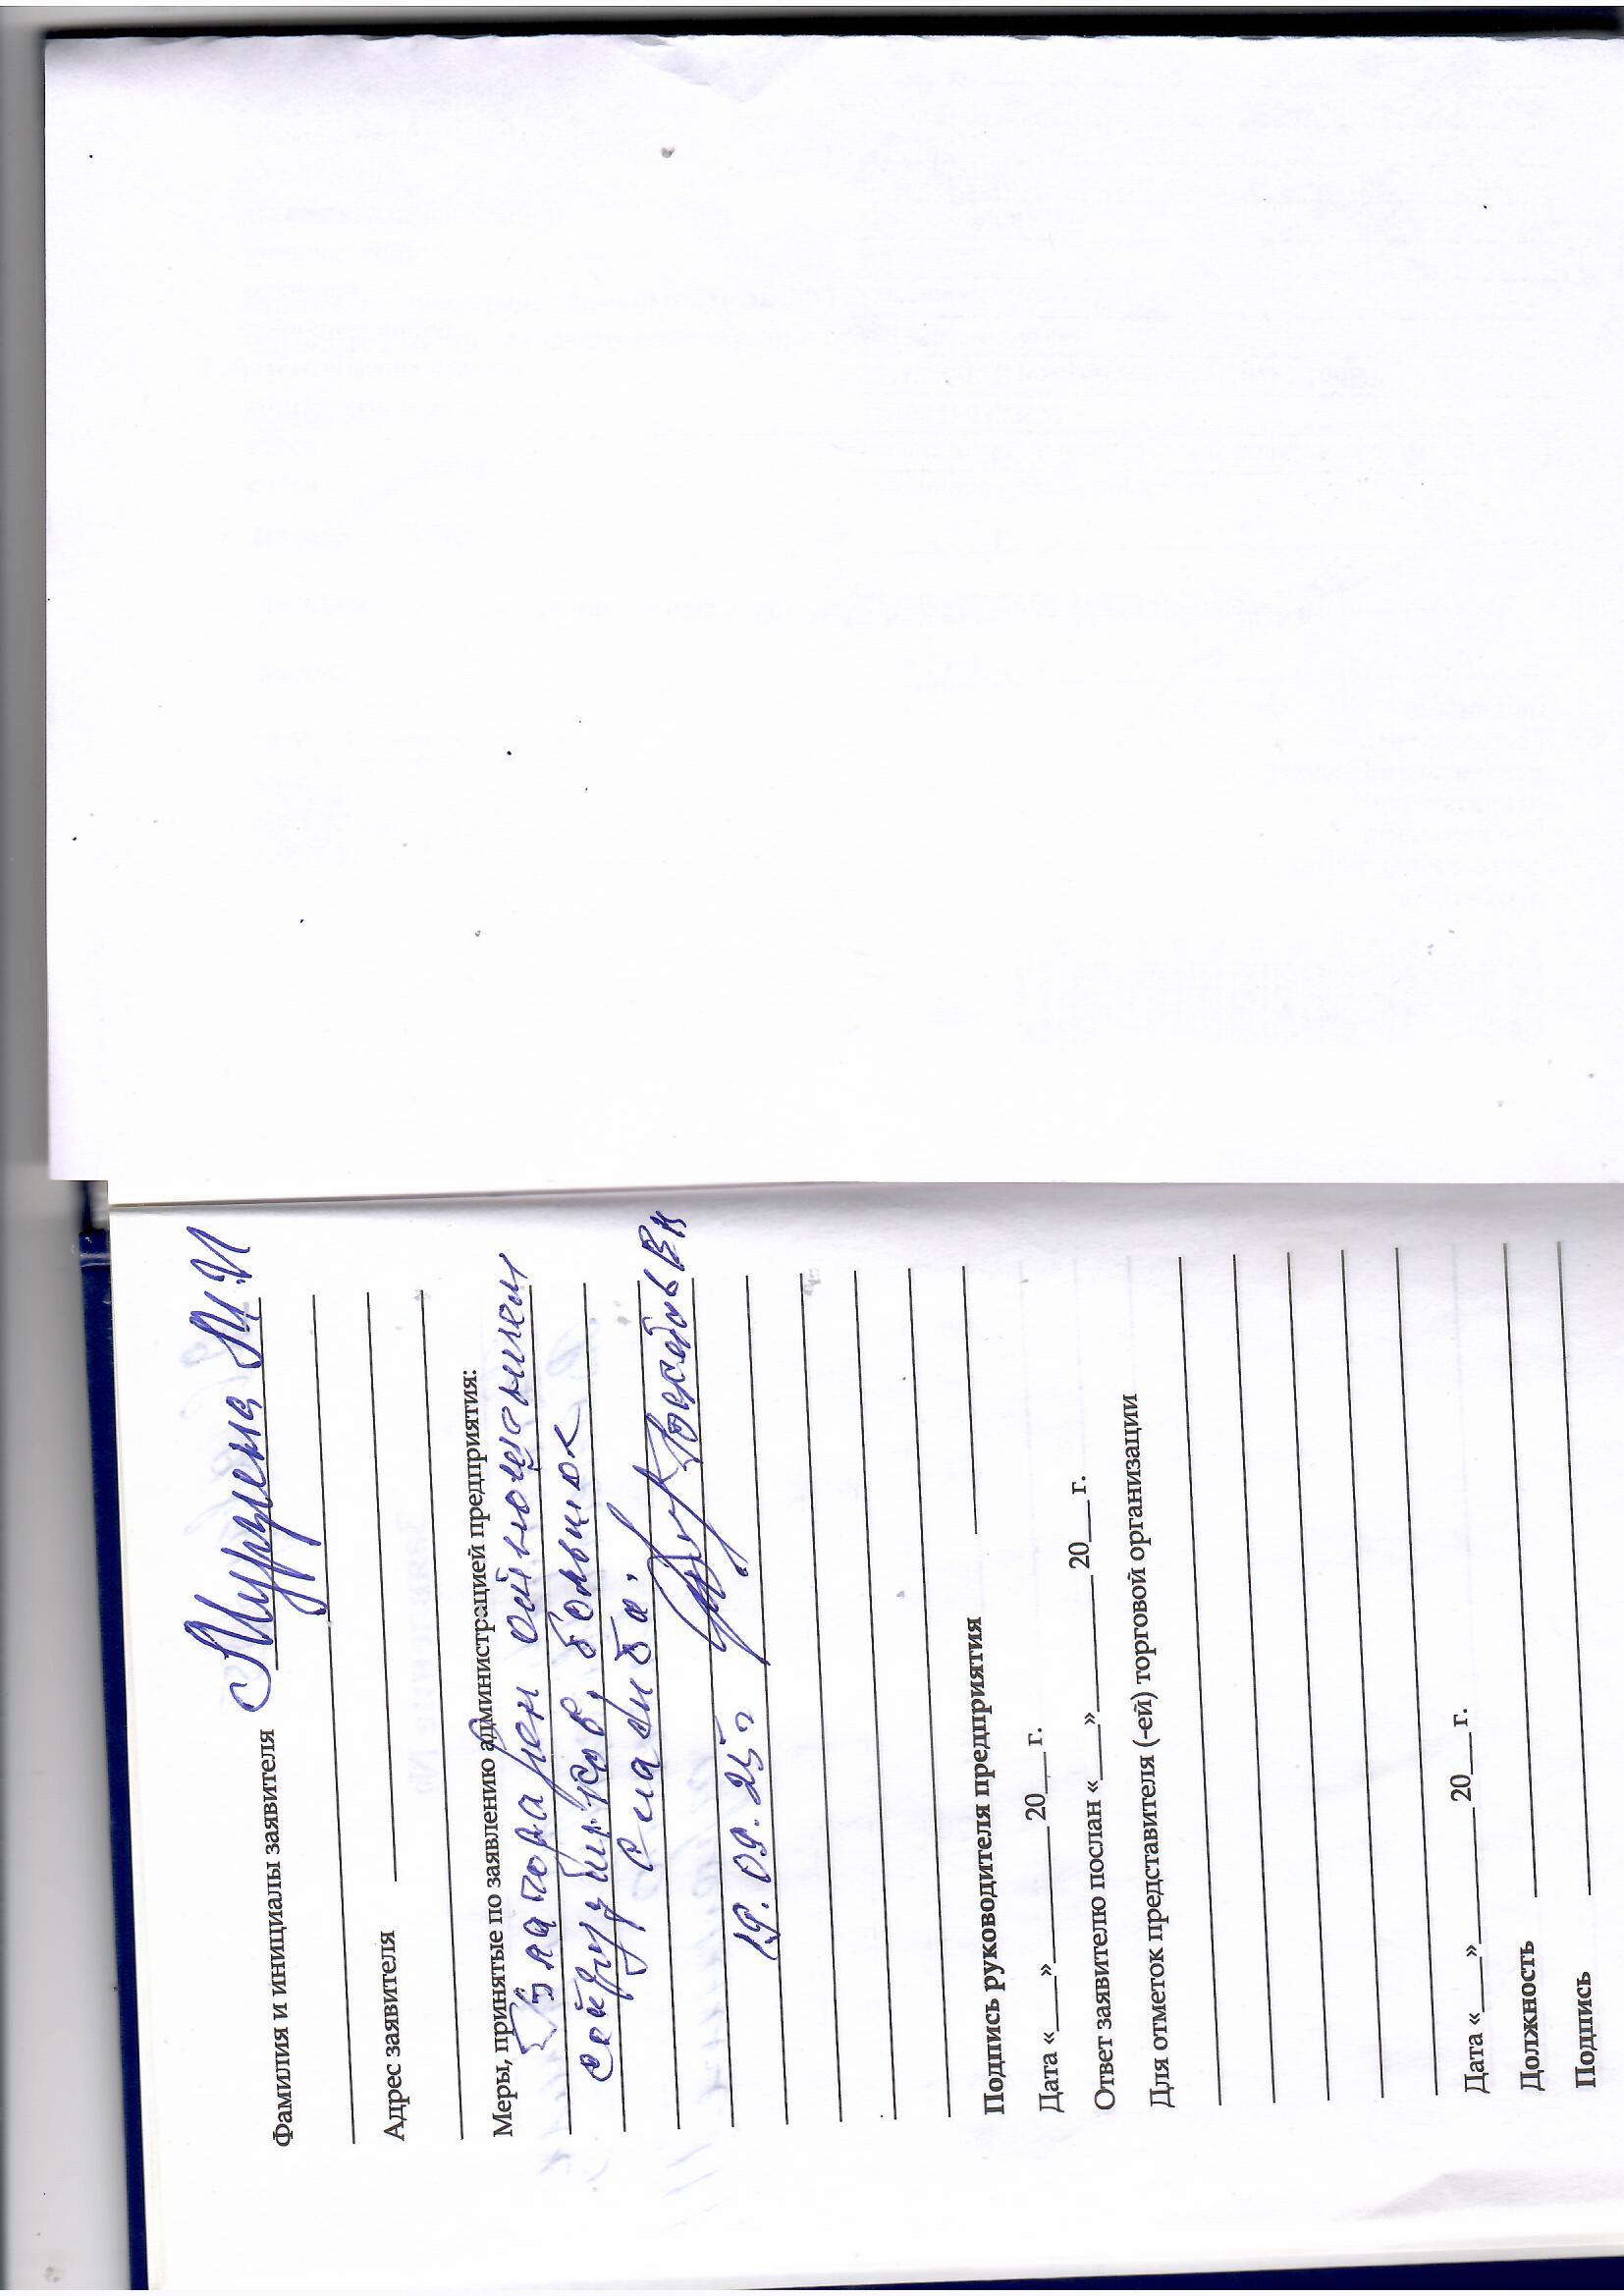 Фамилия и инициалы заявителя Мурушена М.И
Адрес заявителя
Меры, принятые по заявлению администрацией предприятия:
Благодарен
большое
спасибо.
19.09.25г
Подпись руководителя предприятия
Дата «___» ________ 20___г.
Ответ заявителю послан «___» ________ 20___г.
Для отметок представителя (-ей) торговой организации
Дата «___» ________ 20___г.
Должность
Подпись